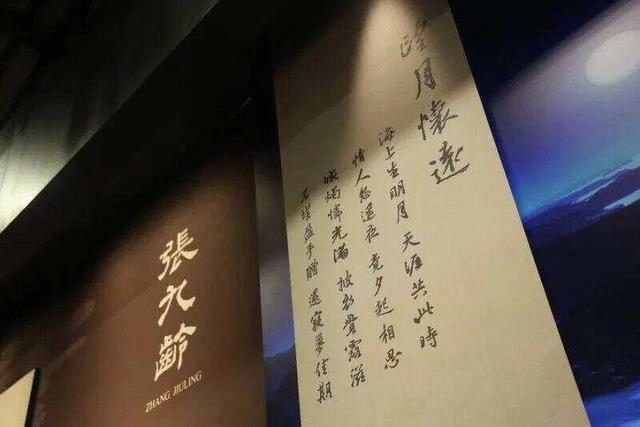 望月懷遠
海上生明月 天涯共此時
情人怨遥夜 竟夕起相思
滅燭憐光滿 披衣覺露滋
不堪盈手贈 還寢夢佳期
張九齡
ZHANG JIULING